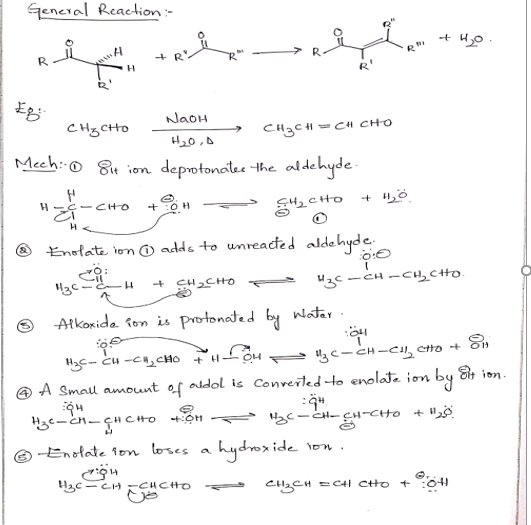 General Reaction:-
O H H R R' + R" O R'" → R O R' R" R'" + H2O.
Eg:-
CH3CHO NaOH H2O, Δ → CH3CH = CH CHO
Mech:- ① ⊖OH ion deprotonates the aldehyde.
H
H - C - CHO + ⊖:ÖH ⇌ CH2CHO + H2Ö.
H ⊖ ①
② Enolate ion ① adds to unreacted aldehyde.
:O: :Ö:⊖
H3C - C - H + CH2CHO ⇌ H3C - CH - CH2CHO.
⊖
③ Alkoxide ion is protonated by water.
:Ö:⊖ :ÖH
H3C - CH - CH2CHO + H - ÖH ⇌ H3C - CH - CH2 CHO + ⊖ÖH
④ A small amount of aldol is converted to enolate ion by ⊖ÖH ion.
:ÖH :ÖH
H3C - CH - CHCHO + ⊖:ÖH ⇌ H3C - CH - CH - CHO + H2Ö
H ⊖
⑤ Enolate ion loses a hydroxide ion.
:ÖH
H3C - CH - CHCHO ⇌ CH3CH = CH CHO + ⊖:ÖH
⊖